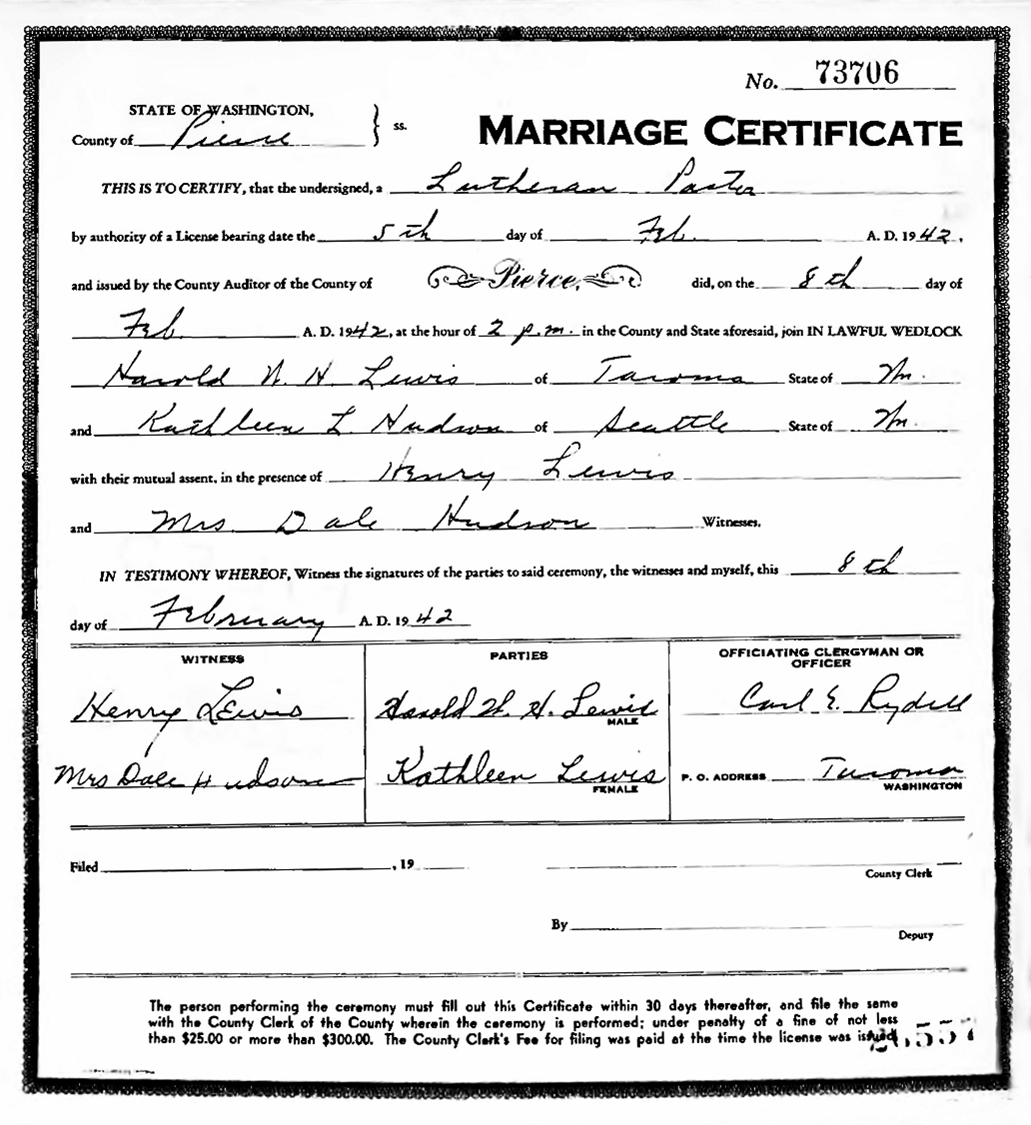 No. 73706
STATE OF WASHINGTON,
County of Pierce } ss.
MARRIAGE CERTIFICATE
THIS IS TO CERTIFY, that the undersigned, a Lutheran Pastor
by authority of a License bearing date the 5th day of Feb. A. D. 1942,
and issued by the County Auditor of the County of Pierce, did, on the 8th day of
Feb. A. D. 1942, at the hour of 2 p.m. in the County and State aforesaid, join IN LAWFUL WEDLOCK
Harold W. H. Lewis of Tacoma State of Wn.
and Kathleen L. Hudson of Seattle State of Wn.
with their mutual assent, in the presence of Henry Lewis
and Mrs Dale Hudson Witnesses.
IN TESTIMONY WHEREOF, Witness the signatures of the parties to said ceremony, the witnesses and myself, this 8th
day of February A. D. 1942
WITNESS
Henry Lewis
Mrs Dale Hudson
PARTIES
Harold W. H. Lewis
MALE
Kathleen Lewis
FEMALE
OFFICIATING CLERGYMAN OR
OFFICER
Carl E. Rydell
P. O. ADDRESS Tacoma
WASHINGTON
Filed , 19
County Clerk
By
Deputy
The person performing the ceremony must fill out this Certificate within 30 days thereafter, and file the same
with the County Clerk of the County wherein the ceremony is performed; under penalty of a fine of not less
than $25.00 or more than $300.00. The County Clerk's Fee for filing was paid at the time the license was issued.